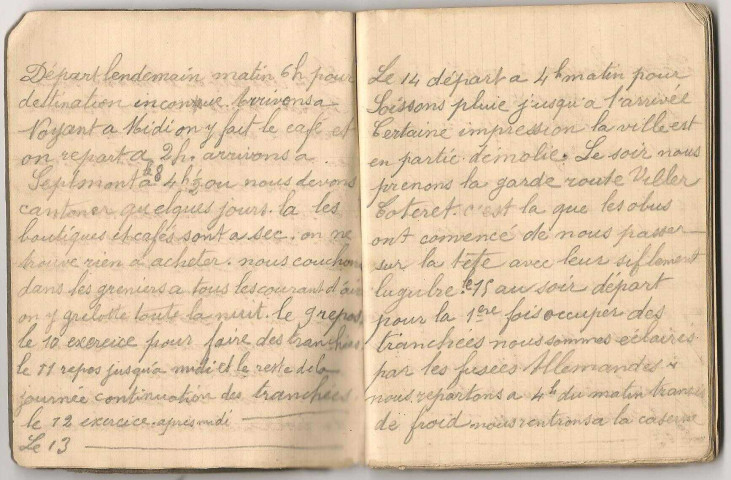 Départ lendemain matin 6h pour
destination inconnue Arrivons a
Noyant a Midi on y fait le café et
on repart a 2h. arrivons a
Septmont à 4h½ ou nous devons
le 8
cantoner quelques jours. la les
boutiques et cafés sont a sec. on ne
trouve rien a acheter. nous couchons
dans les greniers a tous les courant d'air
on y grelotte toute la nuit. le 9 repos
le 10 exercice pour faire des tranchées
le 11 repos jusqu'a midi et le reste de la
journée continuation des tranchées
le 12 exercice. apres midi
Le 13
Le 14 départ a 4h matin pour
Soissons pluie jusqu'a l'arrivée
Certaine impression la ville est
en partie démolie. Le soir nous
prenons la garde route Viller
Coteret. c'est la que les obus
ont comencé de nous passer
sur la tête avec leur siflement
lugubre le 15 au soir départ
pour la 1ere fois occuper des
tranchées nous sommes eclairés
par les fusées Allemandes.
nous repartons a 4h du matin transis
de froid. nous rentrons a la caserne